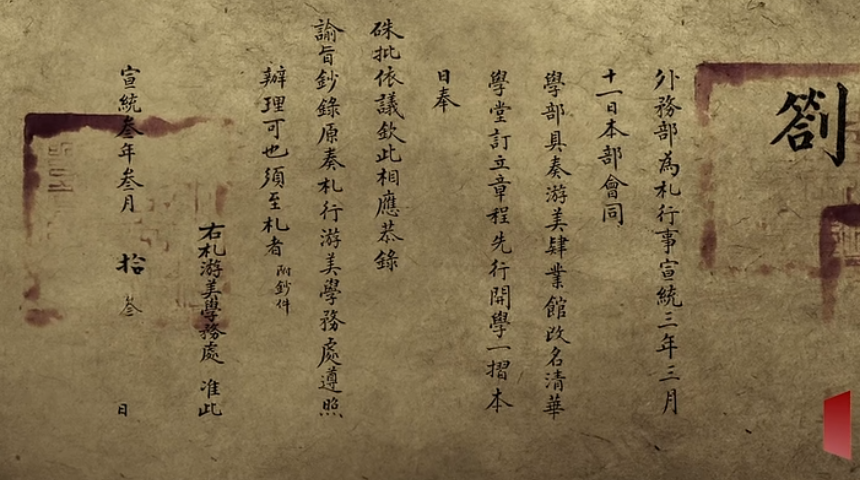 劄
外務部為札行事宣統三年三月
十一日本部會同
學部具奏游美肄業館改名清華
學堂訂立章程先行開學一摺本
日奉
硃批依議欽此相應恭錄
諭旨鈔錄原奏札行游美學務處遵照
辦理可也須至札者
附鈔件
右札游美學務處 准此
宣統叁年叁月 拾 叁 日